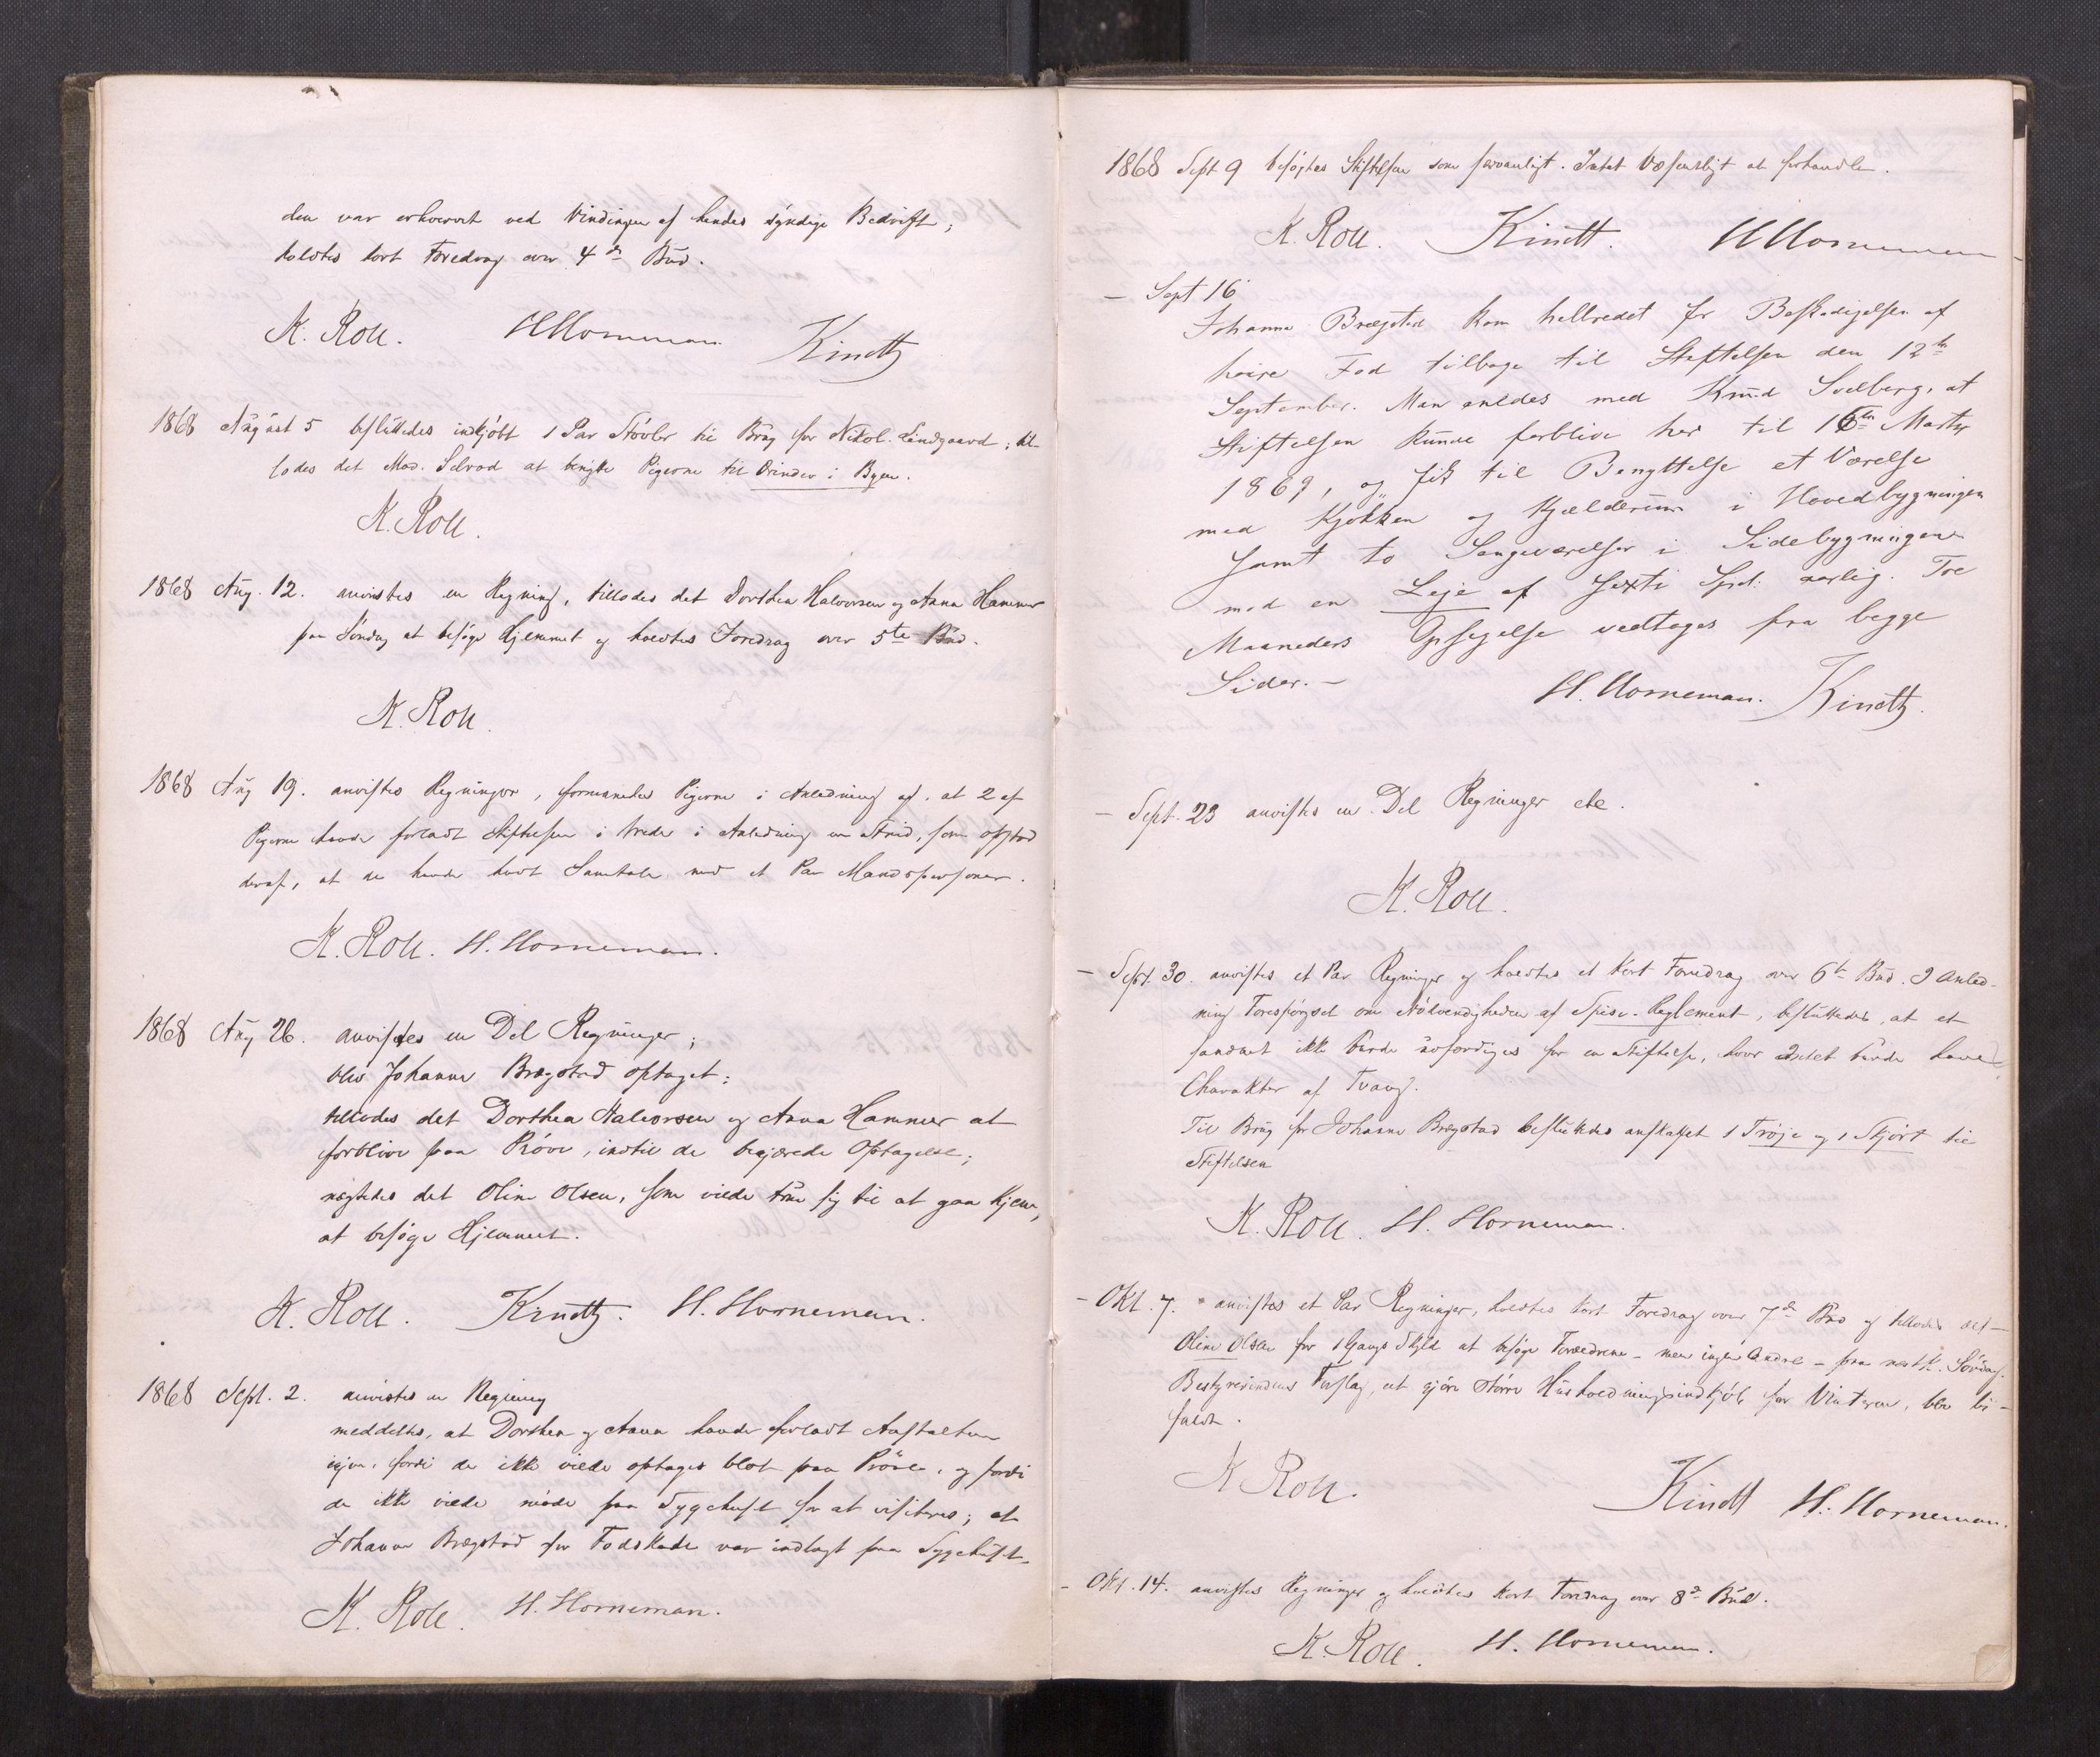 den var erhvervet ved Vindingen af hendes syndige Bedrift;
holdtes kort Foredrag over 4de Bud.
K. Roll. HHorneman Kindtz
1868 August 5 besluttedes indkjøbt 1 Par Støvler til Brug for Nikol. Lindgaard; til-
lodes det Mad. Selvod at benytte Pigerne til Ærinder i Byen.
K. Roll.
1868 Aug. 12. anvistes en Regning, tillodes det Dorthea Halvorsen og Anna Hammer
paa Søndag at besøge Hjemmet og holdtes Foredrag over 5te Bud.
K. Roll.
1868 Aug 19. anvistes Regninger, formanedes Pigerne i Anledning af, at 2 af
Pigerne havde forladt Stiftelsen i Vrede i Anledning en Strid, som opstod
deraf, at de havde havt Samtale med et Par Mandspersoner.
K. Roll. H. Horneman.
1868 Aug 26. anvistes en Del Regninger;
blev Johanne Brægstad optaget;
tillodes det Dorthea Halvorsen og Anna Hammer at
forblive paa Prøve, indtil de begjærede Optagelse;
nægtedes det Oline Olsen, som vilde true sig til at gaa hjem,
at besøge Hjemmet.
K. Roll. Kindtz. H. Horneman.
1868 Sept. 2. anvistes en Regning
meddeltes, at Dorthea og Anna havde forladt Anstalten
igjen, fordi de ikke vilde optages blot paa Prøve, og fordi
de ikke vilde møde paa Sygehuset for at visiteres; at
Johanne Brægstad for Fodskade var indlagt paa Sygehuset.
K. Roll. H. Horneman.
1868 Sept 9 besøgtes Stiftelsen som sædvanligt. Intet Væsentligt at forhandle.
K. Roll. Kindtt. HHorneman
— Sept 16
Johanne Brægstad kom helbredet for Beskadigelsen af
høire Fod tilbage til Stiftelsen den 12te
September. Man enedes med Knud Solberg, at
Stiftelsen kunde forblive her til 16de Marts
1869, og fik til Benyttelse et Værelse
med Kjøkken og Kjælderrum i Hovedbygningen
samt to Sengeværelser i Sidebygningen
mod en Leje af sexti Spd. aarlig. Tre
Maaneders Opsigelse vedtages fra begge
Sider. —
H. Horneman. Kindtz.
— Sept. 23 anvistes en Del Regninger etc.
K. Roll.
— Sept. 30. anvistes et Par Regninger og holdtes et kort Foredrag over 6te Bud. I Anled-
ning Forespørgsel om Nødvendigheden af Spise-Reglement, besluttedes, at et
saadant ikke burde udfærdiges for en Stiftelse, hvor Intet burde have
Charakter af Tvang.
Til Brug for Johanne Brægstad besluttedes anskaffet 1 Trøje og 1 Skjørt til
Stiftelsen
K. Roll. H. Horneman.
— Okt. 7. anvistes et Par Regninger, holdtes kort Foredrag over 7de Bud og tillodes det
Oline Olsen for 1 Gangs Skyld at besøge Forældrene – men ingen Andre – paa næstk. Søndag.
Bestyrerindens Forslag, at gjøre større Husholdningsindkjøb for Vinteren, blev bi-
faldt.
K Roll. Kindtt H. Horneman.
— Okt. 14. anvistes Regninger og holdtes kort Foredrag over 8de Bud.
K. Roll. H. Horneman.